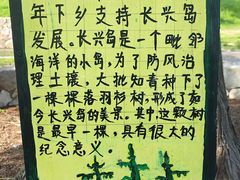 年下乡支持长兴岛
发展。长兴岛是一个毗邻
海洋的小岛，为了防风治
理土壤，大批知青种下了
一棵棵落羽杉树，形成了如
今长兴岛的美景。其中，这颗树
是最早一棵，具有很大的
纪念意义。